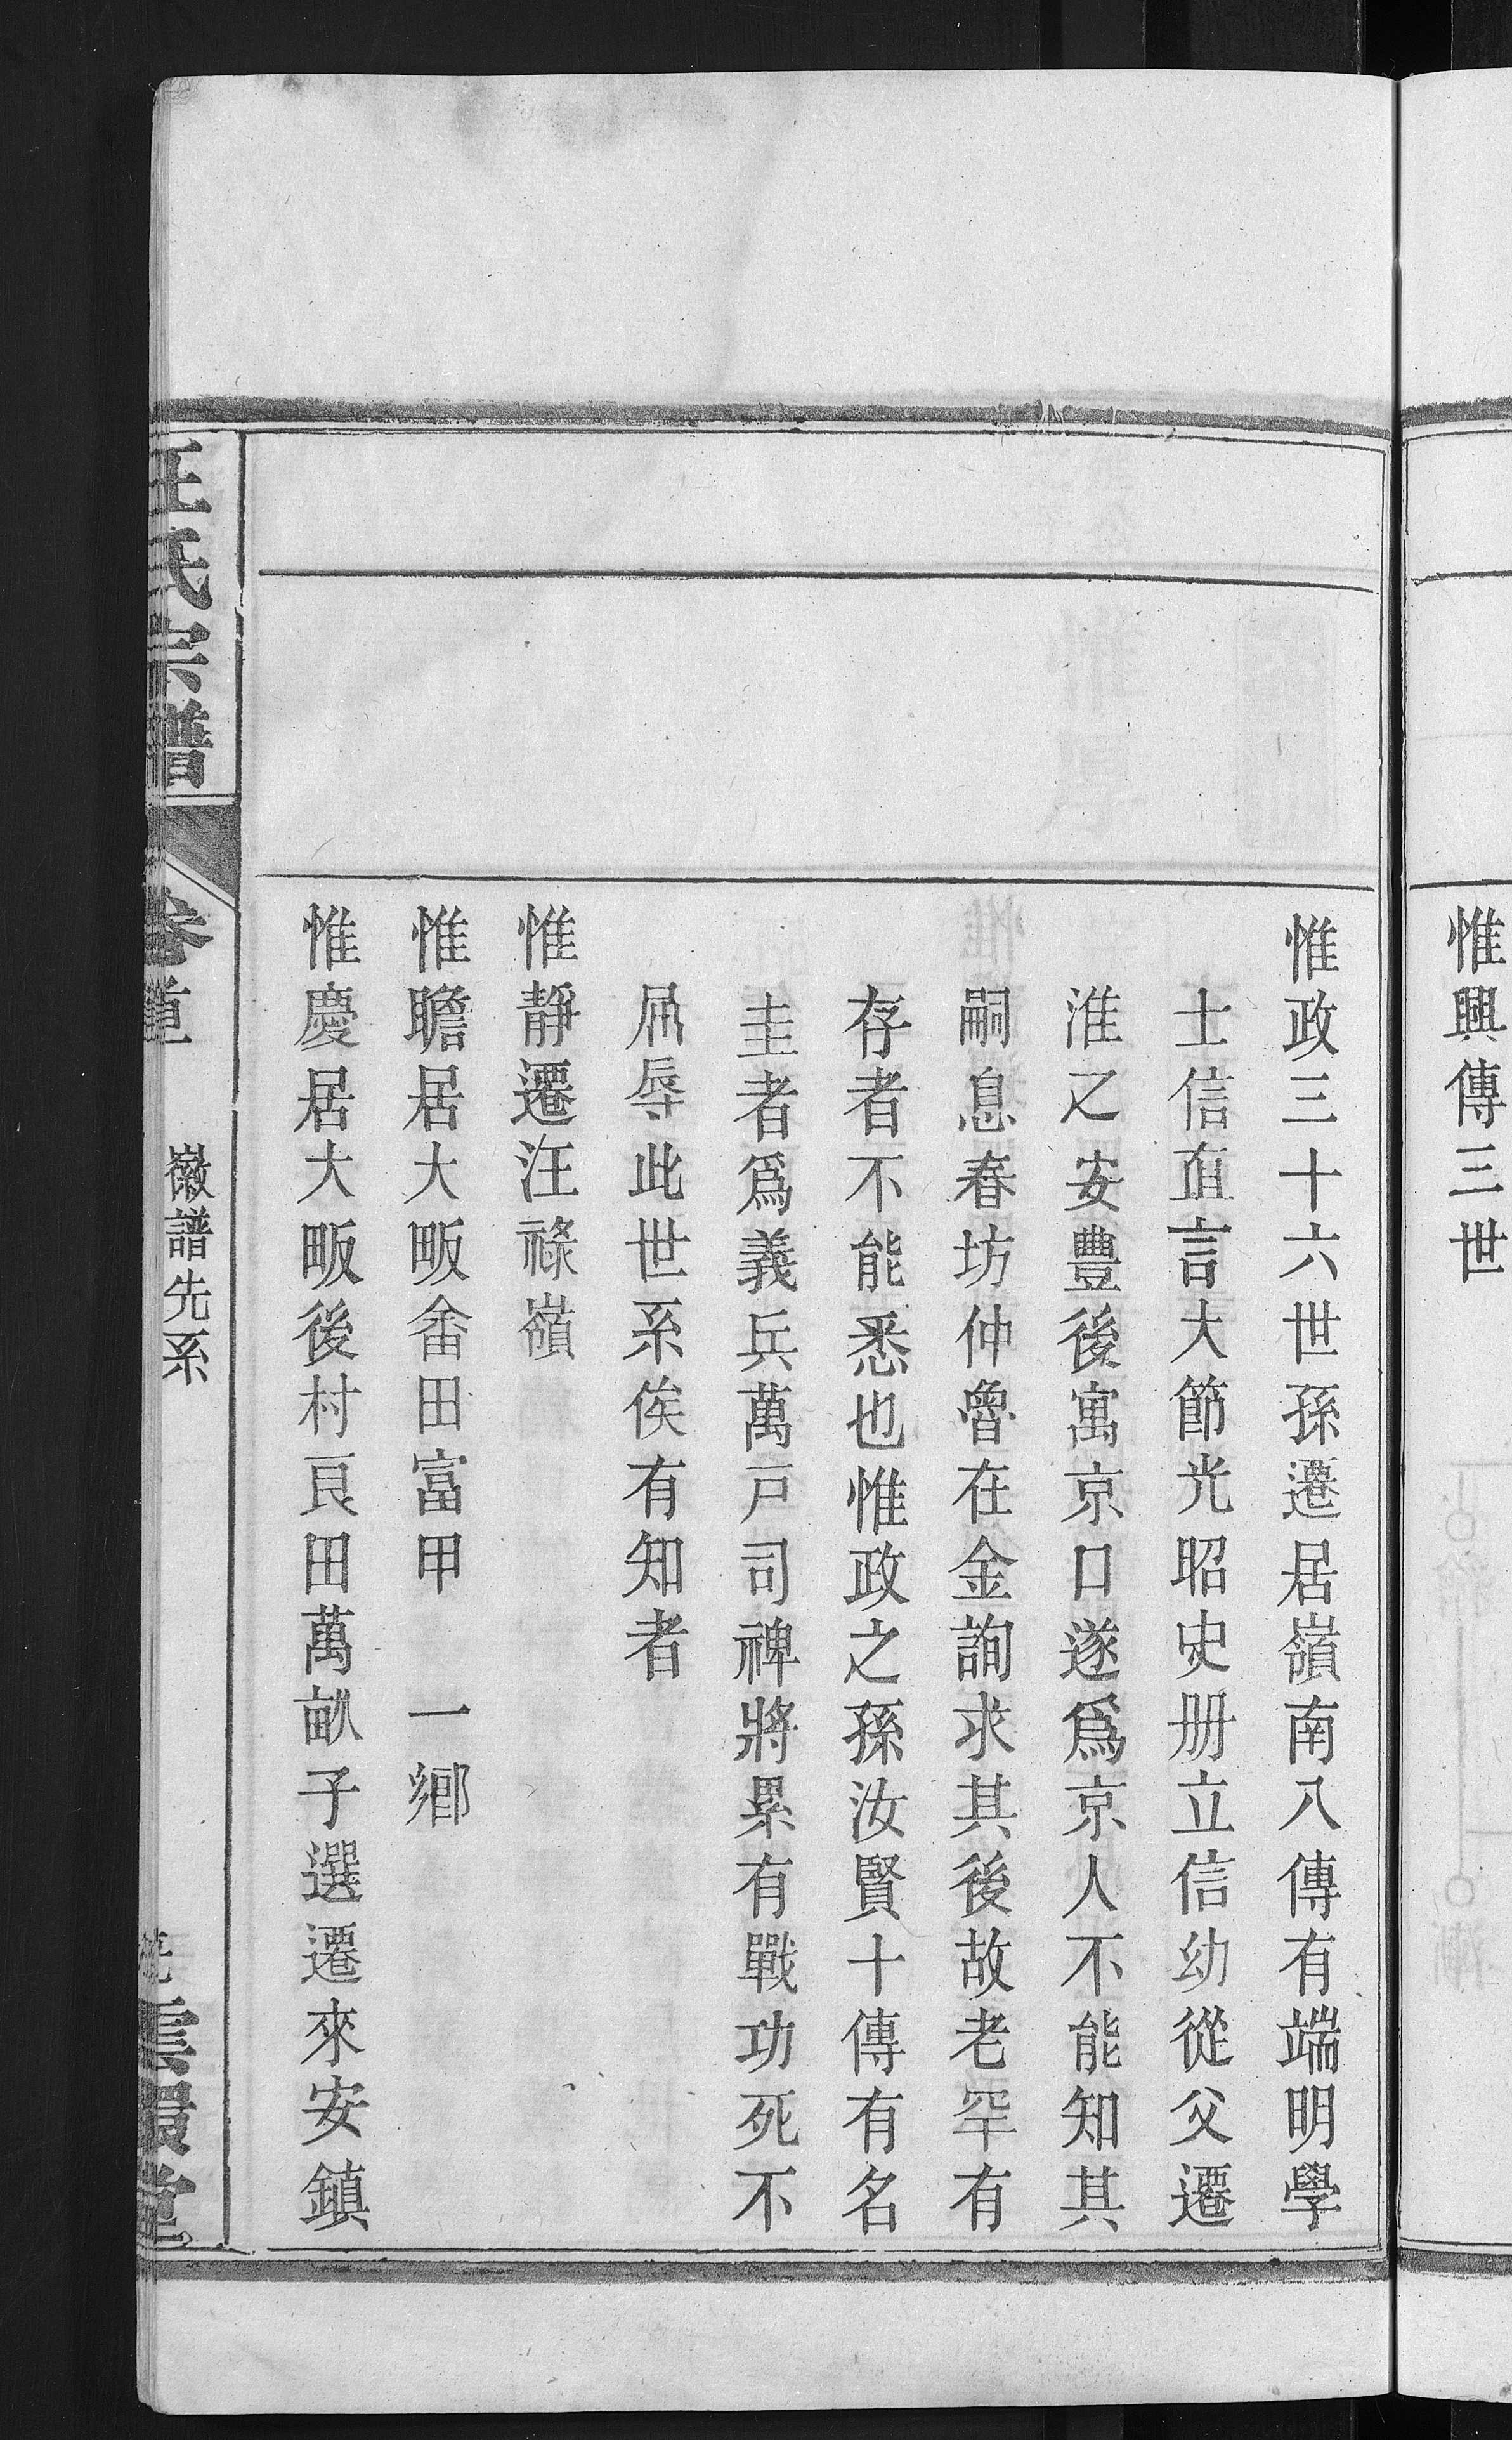 惟興傳三世
惟政三十六世孫遷居嶺南八傳有端明學
士信直言大節光昭史册立信幼從父遷
淮之安豐後寓京口遂爲京人不能知其
嗣息春坊仲魯在金詢求其後故老罕有
存者不能悉也惟政之孫汝賢十傳有名
圭者爲義兵萬戸司裨將累有戰功死不
屈辱此世系俟有知者
惟靜遷汪祿嶺
惟瞻居大畈畬田富甲 一鄉
惟慶居大畈後村良田萬畝子選遷來安鎮
汪氏宗譜
卷首
徽譜先系
雲環堂